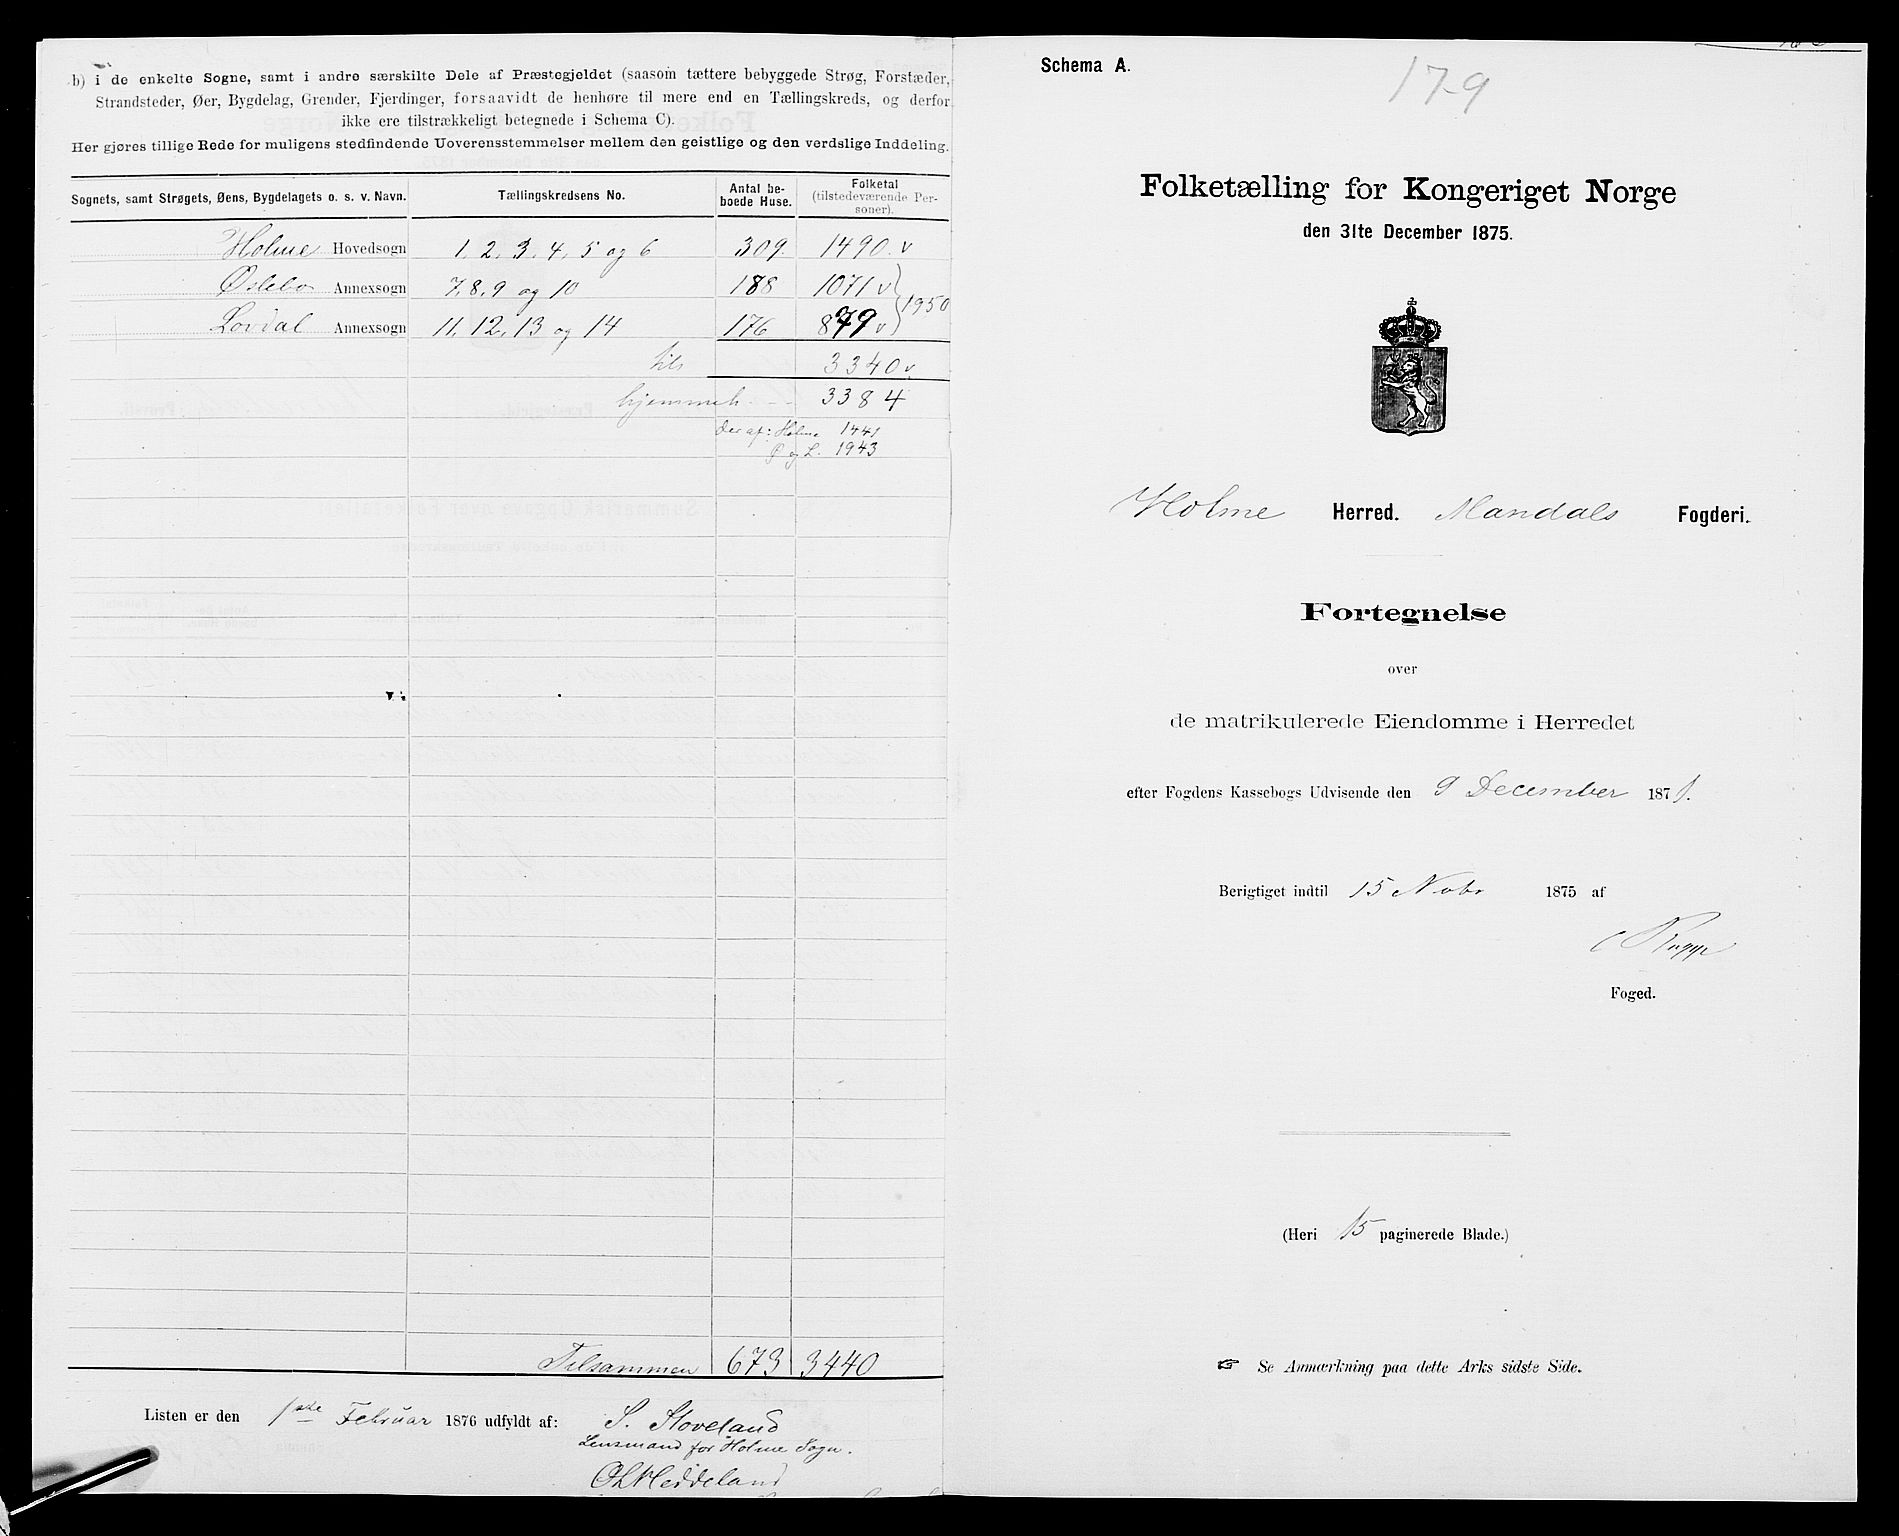 b) i de enkelte Sogne, samt i andre særskilte Dele af Præstegjeldet (saasom tættere bebyggede Strøg, Forstæder,
Strandsteder, Øer, Bygdelag, Grender, Fjerdinger, forsaavidt de henhøre til mere end en Tællingskreds, og derfor
ikke ere tilstrækkeligt betegnede i Schema C).
Her gjøres tillige Rede for muligens stedfindende Uoverensstemmelser mellem den geistlige og den verdslige Inddeling.
Sognets, samt Strøgets, Øens, Bygdelagets o. s. v. Navn. Tællingskredsens No. Antal be-boede Huse. Folketal (tilstedeværende Per-soner).
Holme Hovedsogn 1, 2, 3, 4, 5 og 6 309. 1490. v
Øslebø Annexsogn 7, 8, 9 og 10 188 1071 v
1950
Annexsogn 11, 12, 13 og 14 176 879 v
tils 3340 v.
hjemmeh. 3384
Deraf: Holme 1441
Ø og L. 1943
Tilsammen 673 3440
Listen er den 1ste Februar 1876 udfyldt af: S. Stoveland
Lensmand for Holme Sogn.
Schema A.
179
Folketælling for Kongeriget Norge
den 31te December 1875.
Holme Herred. Mandals Fogderi.
Fortegnelse
over
de matrikulerede Eiendomme i Herredet
efter Fogdens Kassebogs Udvisende den 9 December 187
Berigtiget indtil 15 Novbr 1875 af
Foged.
(Heri 15 paginerede Blade.)
☞ Se Anmærkning paa dette Arks sidste Side.